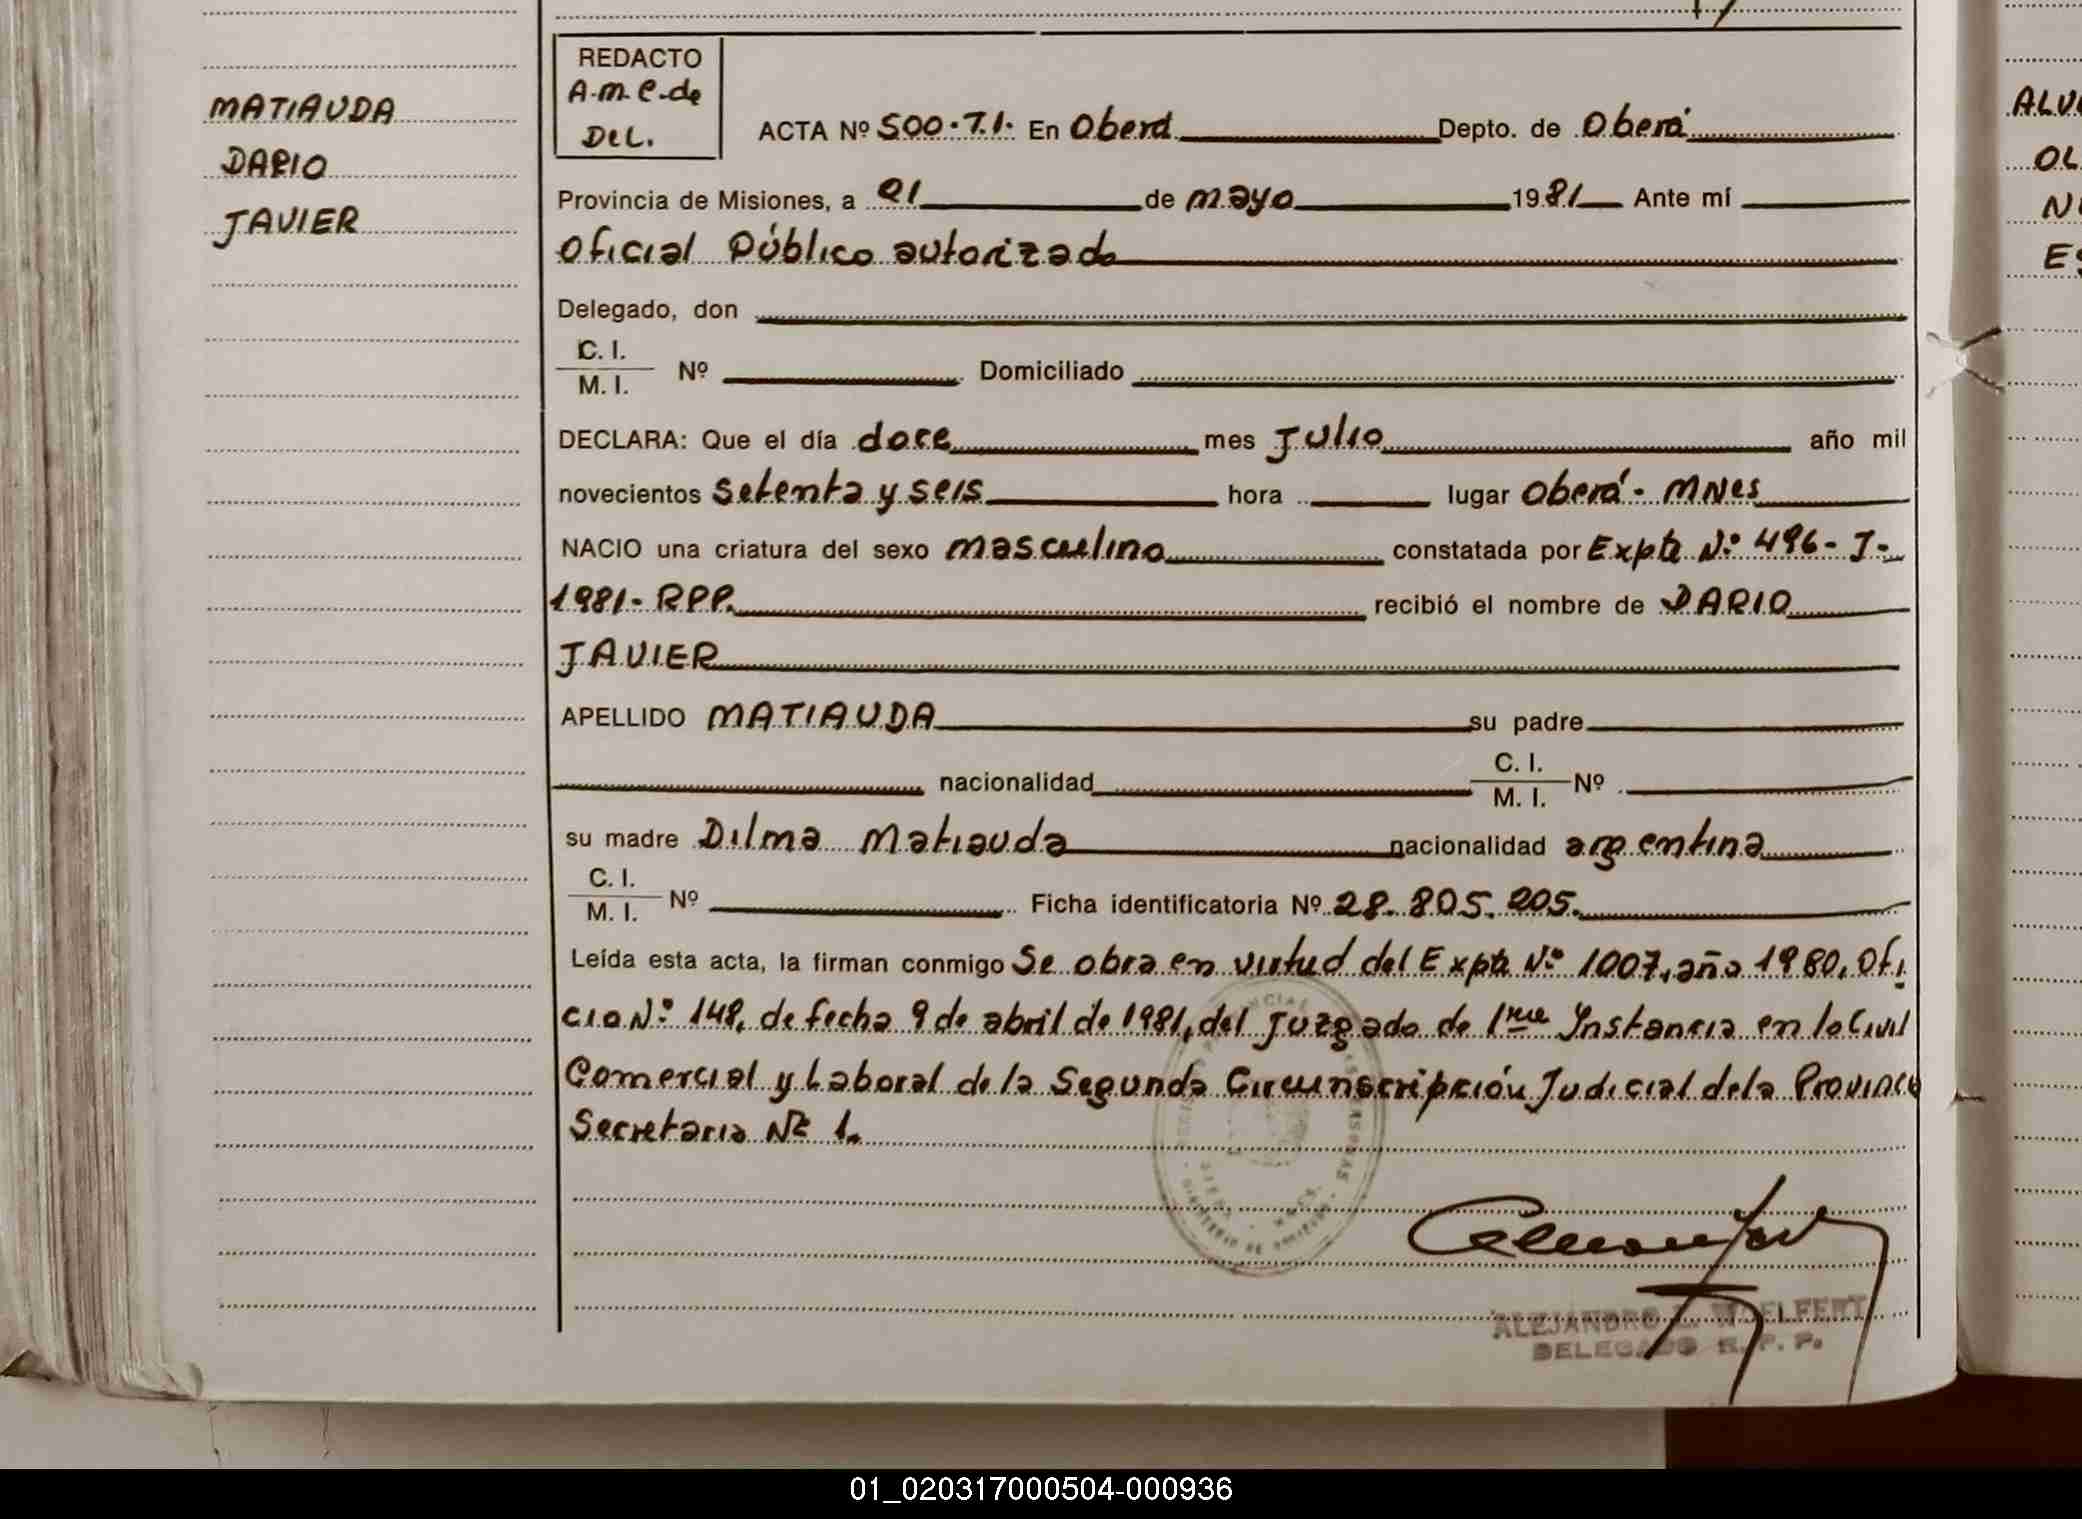 MATIAUDA
DARIO
JAVIER
REDACTO
A.M.C. de
DEL.
ACTA Nº 500.T.I. En Oberá Depto. de Oberá
Provincia de Misiones, a 21 de mayo 1981 Ante mí
Oficial Público autorizado
Delegado, don
C. I.
M. I. Nº Domiciliado
DECLARA: Que el día doce mes Julio año mil
novecientos setenta y seis hora lugar Oberá - MNES
NACIO una criatura del sexo masculino constatada por Expte Nº 496- J-
1981- RPP. recibió el nombre de DARIO
JAVIER
APELLIDO MATIAUDA su padre
nacionalidad C. I.
M. I. Nº
su madre Dilma Matiauda nacionalidad argentina
C. I.
M. I. Nº Ficha identificatoria Nº 28.805.205.
Leída esta acta, la firman conmigo Se obra en virtud del Expte Nº 1007, año 1980, Ofi
cio Nº 148, de fecha 9 de abril de 1981, del Juzgado de 1ra Instancia en lo Civil
Comercial y Laboral de la Segunda Circunscripción Judicial de la Provincia
Secretaria Nº 1.
ALEJANDRO WOELFERT
DELEGADO R. P. P.
ALV
OL
N
ES
01_020317000504-000936